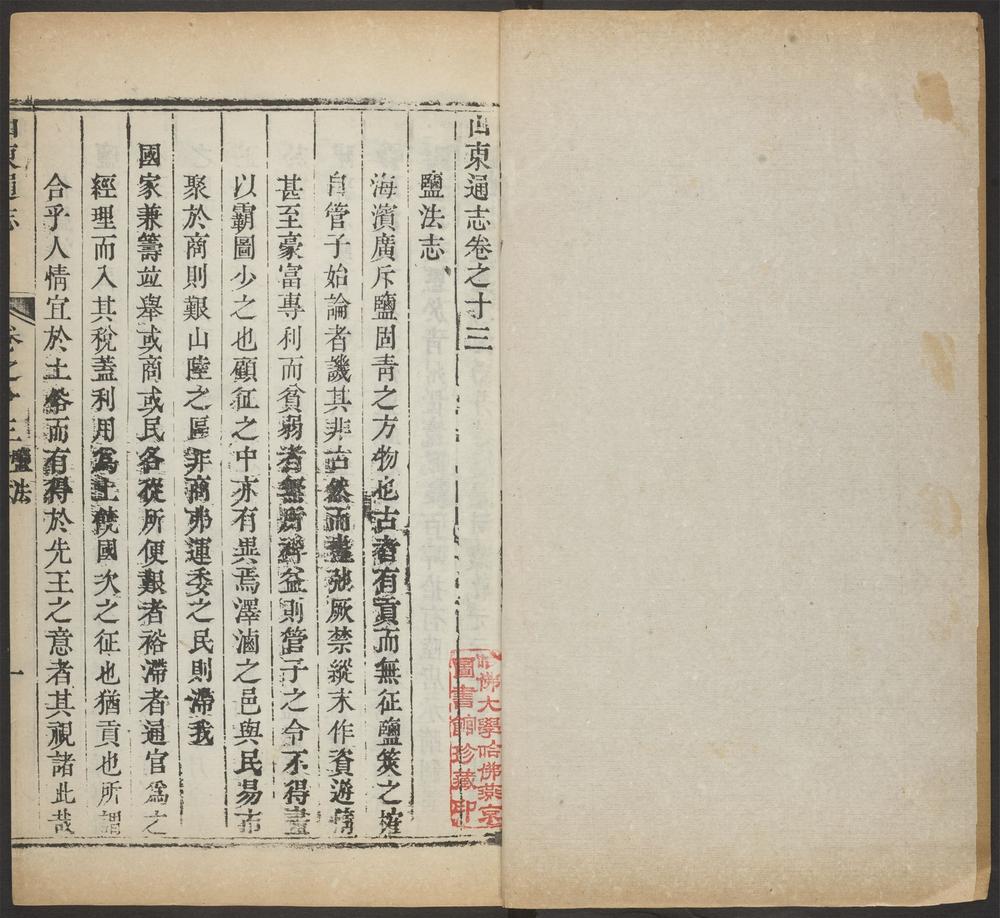 山東通志卷之十三
鹽法志
海濱廣斥鹽固青之方物也古者有貢而無征鹽筴之搉
自管子始論者譏其非古然而盡弛厥禁縱末作資遊惰
甚至豪富專利而貧弱者無所裨益則管子之令不得盡
以霸圖少之也顧征之中亦有異焉澤滷之邑與民易市
聚於商則艱山陸之區非商弗運委之民則滯我
國家兼籌竝舉或商或民各從所便艱者裕滯者通官爲之
經理而入其稅蓋利用爲上饒國次之征也猶貢也所謂
合乎人情宜於土俗而有得於先王之意者其視諸此哉
山東通志
卷之十三 鹽法
一
哈佛大學哈佛燕京
圖書館珍藏印